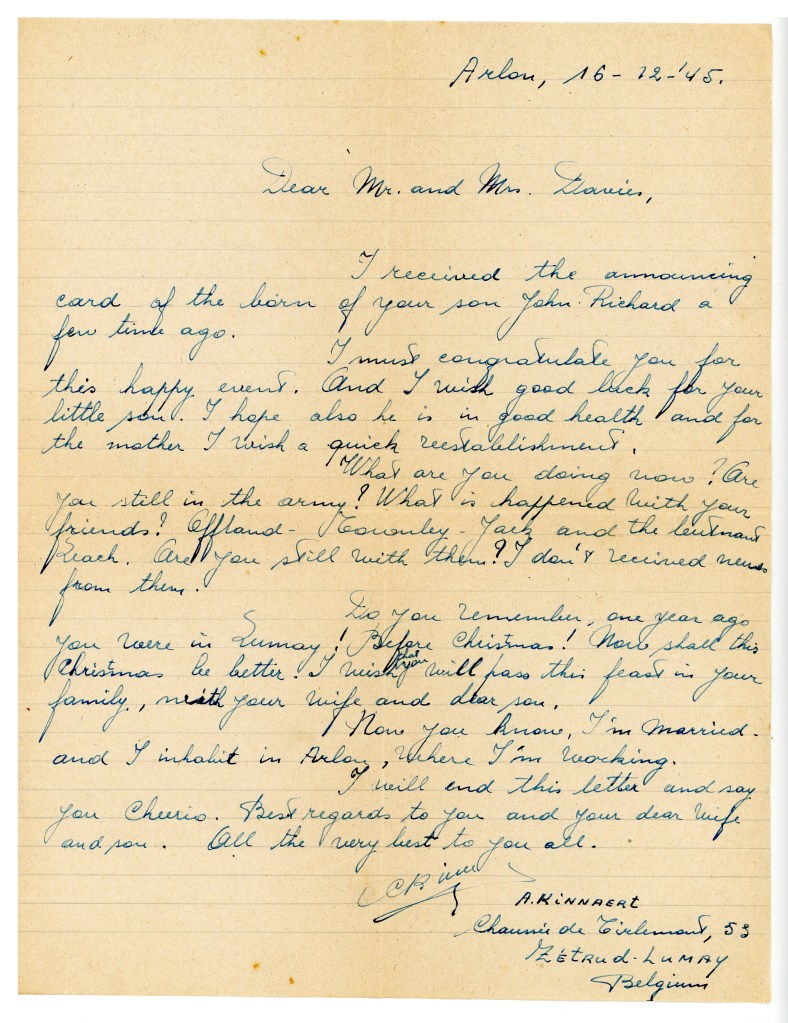 Arlon, 16-12-'45.
Dear Mr. and Mrs. Davies,
I received the announcing
card of the born of your son John-Richard a
few time ago.
I must congratulate you for
this happy event. And I wish good luck for your
little son. I hope also he is in good health and for
the mother I wish a quick reestablishment.
What are you doing now? Are
you still in the army? What is happened with your
friends? Offland - - Jack and the leutnant
. Are you still with them? I don't received news
from them.
Do you remember, one year ago
you were in Lumay! Before Christmas! Now shall this
Christmas be better! I wish that you will pass this feast in your
family, with your wife and dear son.
Now you know, I'm married -
and I inhabit in Arlon, where I'm working.
I will end this letter and say
you Cheerio. Best regards to you and your dear wife
and son. All the very best to you all.
A. KINNAERT
Chaussée de Tirlemont, 53
ZÉTRUD-LUMAY
Belgium